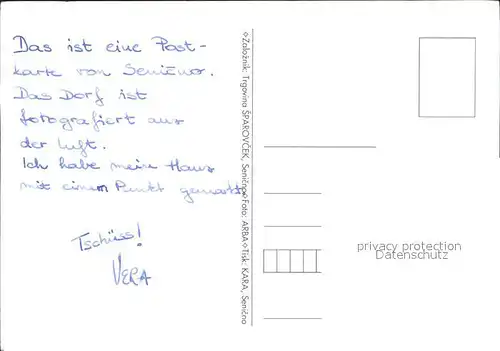 Das ist eine Post-
karte von Senično.
Das Dorf ist
fotografiert aus
der Luft.
Ich habe mein Haus
mit einem Punkt gemarkt
Tschüss!
VERA
Založnik: Trgovina ŠPAROVČEK, Senično Foto: ARBA Tisk: KARA, Senično
privacy protection
Datenschutz